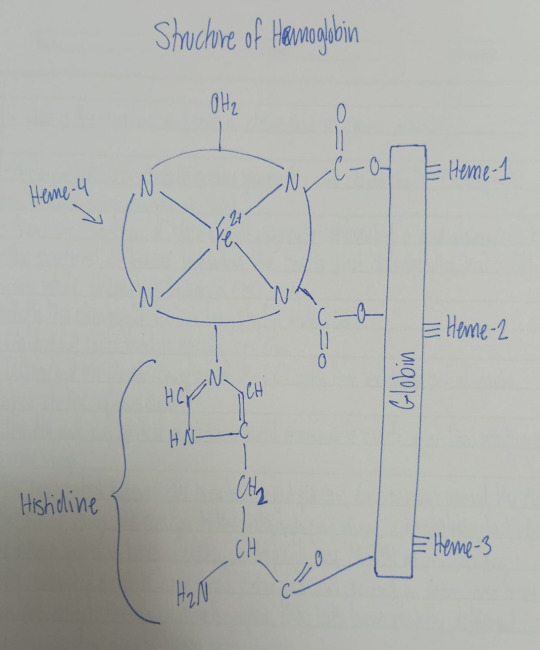 Structure of Hemoglobin
OH2
O
C-O-
Heme-1
Heme-4
N
N
Fe2+
N
N
C-O-
O
Heme-2
Globin
N
HC
CH
HN
C
CH2
Histidine
CH
H2N
C
O
Heme-3